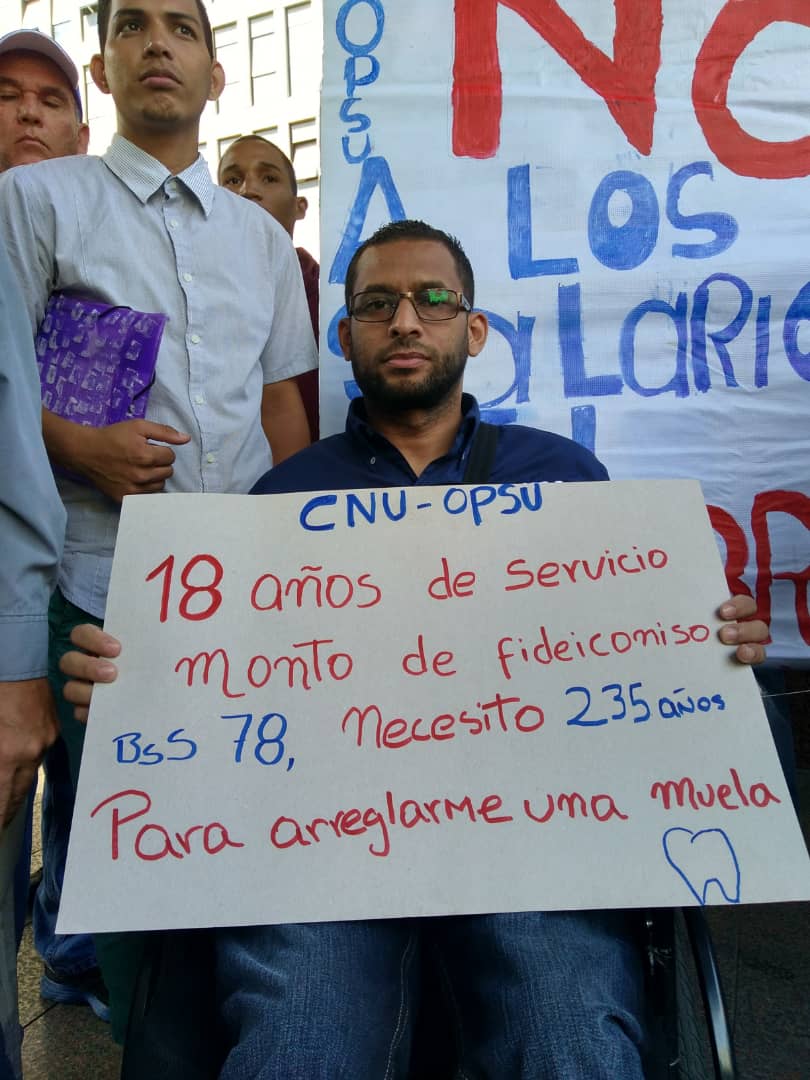 OPSU
NO
A LOS
SALARIO
CNU-OPSU
18 años de servicio
monto de fideicomiso
BsS 78, Necesito 235 años
Para arreglarme una muela